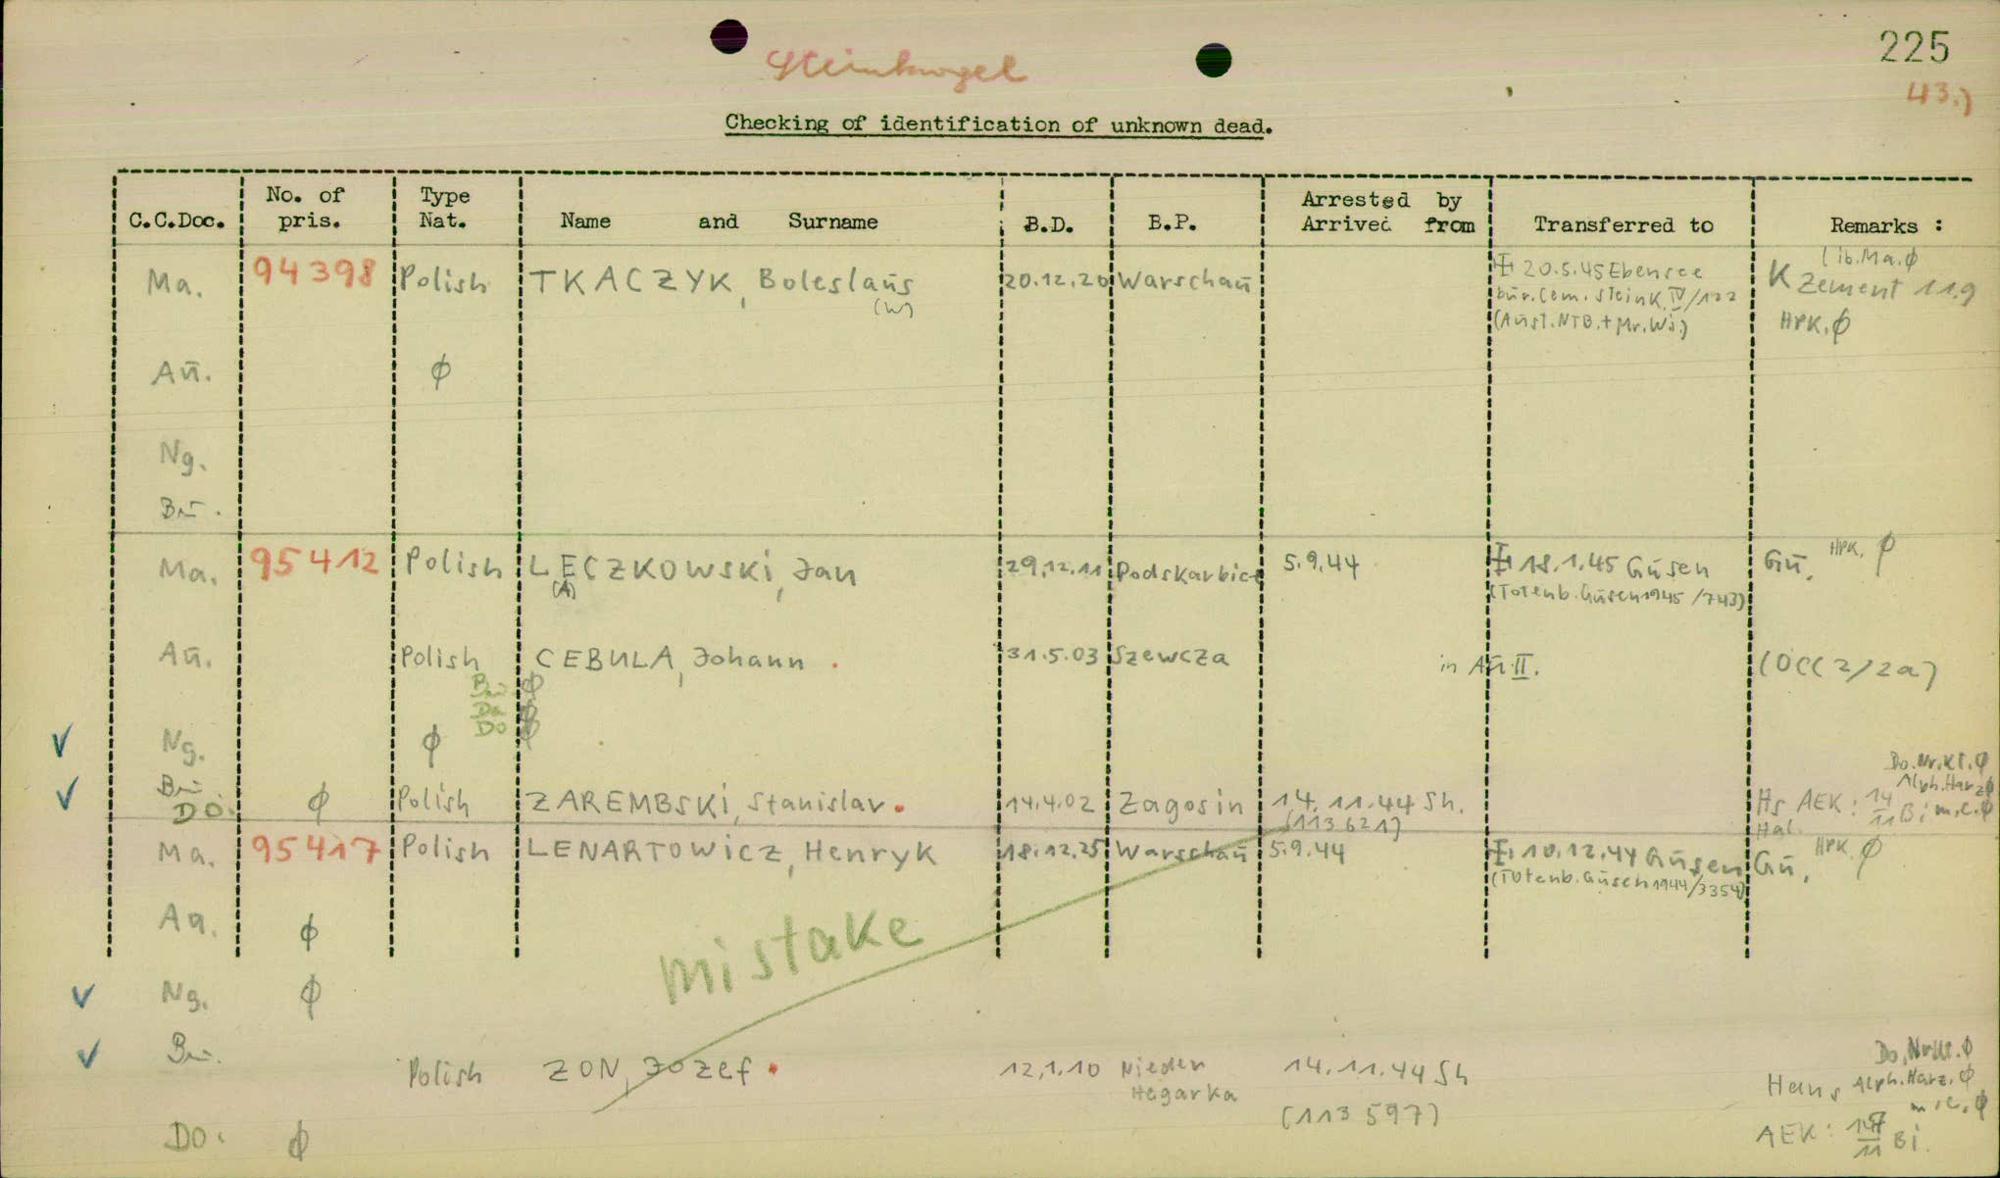 225
Steinkogel
43.)
Checking of identification of unknown dead.
C.C.Doc. No. of pris. Type Nat. Name and Surname B.D. B.P. Arrested by Arrived from Transferred to Remarks :
Ma. 94398 Polish TKACZYK, Boleslaus 20.12.20 Warschau ǂ 20.5.45 Ebensee Lib.Ma.ø
(w) bur.Cem. Steink. IV/122 K Zement 11.9
(Aust.NTB.+Mr.Wi.) HPK.ø
Au. ø
Ng.
Bu.
Ma. 95412 Polish LECZKOWSKI, Jan 29.12.11 Podskarbice 5.9.44 ǂ 18.1.45 Gusen Gu. HPK. ø
(A) (Totenb. Gusen 1945 /743)
Au. Polish CEBULA, Johann . 31.5.03 Szewcza in Au II. (OCC 2/2a)
Bu ø
Da ø
Do ø
Ng. ø
Do.Nr.Kt.ø
Alph.Harz ø
Bu. DO. ø Polish ZAREMBSKI, Stanislav. 14.4.02 Zagosin 14.11.44 Sh. Hs AEK: 14/11 Bi m.c.ø
(113621) Hal.
Ma. 95417 Polish LENARTOWICZ, Henryk 18.12.25 Warschau 5.9.44 ǂ 10.12.44 Gusen Gu, HPK. ø
(Totenb. Gusen 1944/3354)
Aa. ø
mistake
Ng. ø
Bu. Polish ZON, Jozef. 12.1.10 Nieder 14.11.44 Sh Do, Nr Kt. ø
Hegarka Hans Alph.Harz. ø
(113597) m.c. ø
DO. ø AEK: Bi.